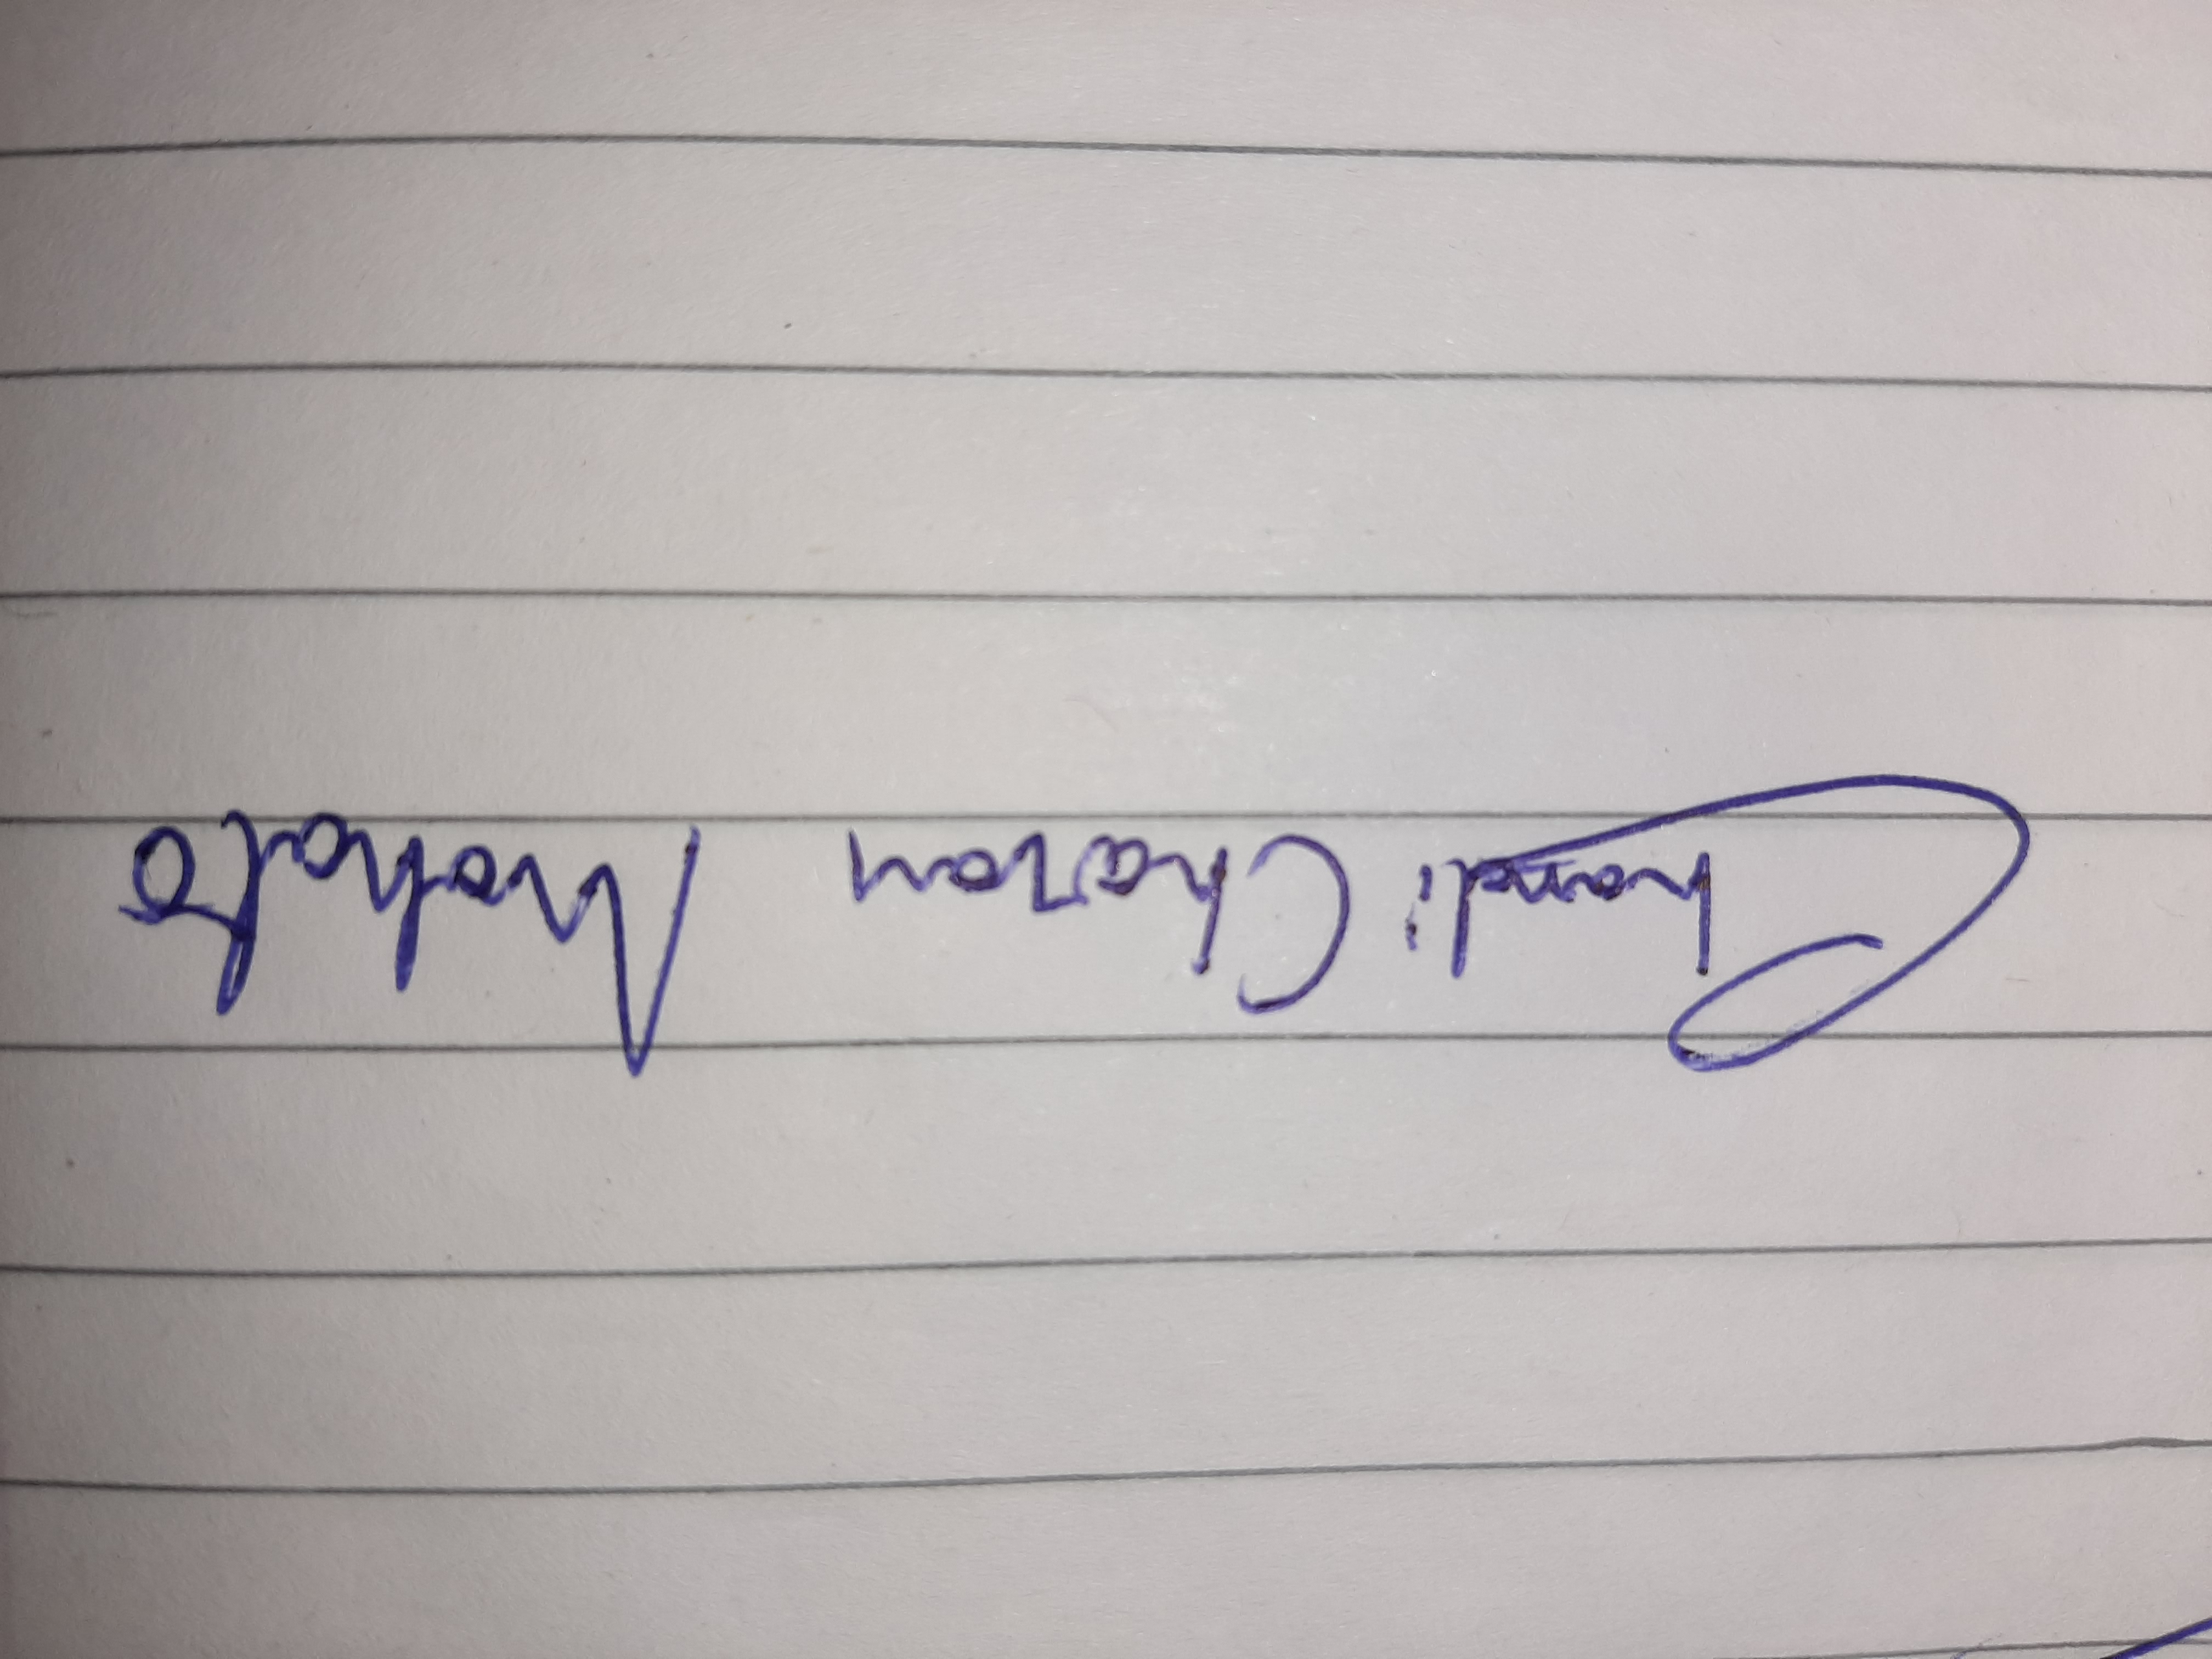 Chandi Charan Mahato